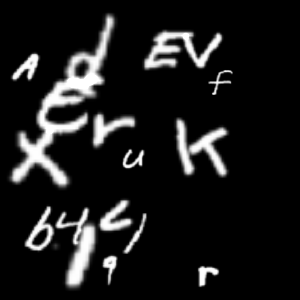 A d EV
f
E r
X u K
b 4 L )
9 r